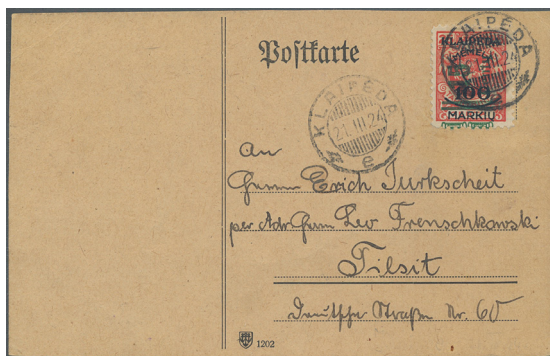 Postkarte
KLAIPĖDA
100
MARKIŲ
KLAIPĖDA
21.III.24
KLAIPĖDA
21.III.24
e
An
Herrn Erich Turkscheit
per Adr. Herrn Leo Frenschkowski
Tilsit
Deutsche Straße Nr. 60
1202